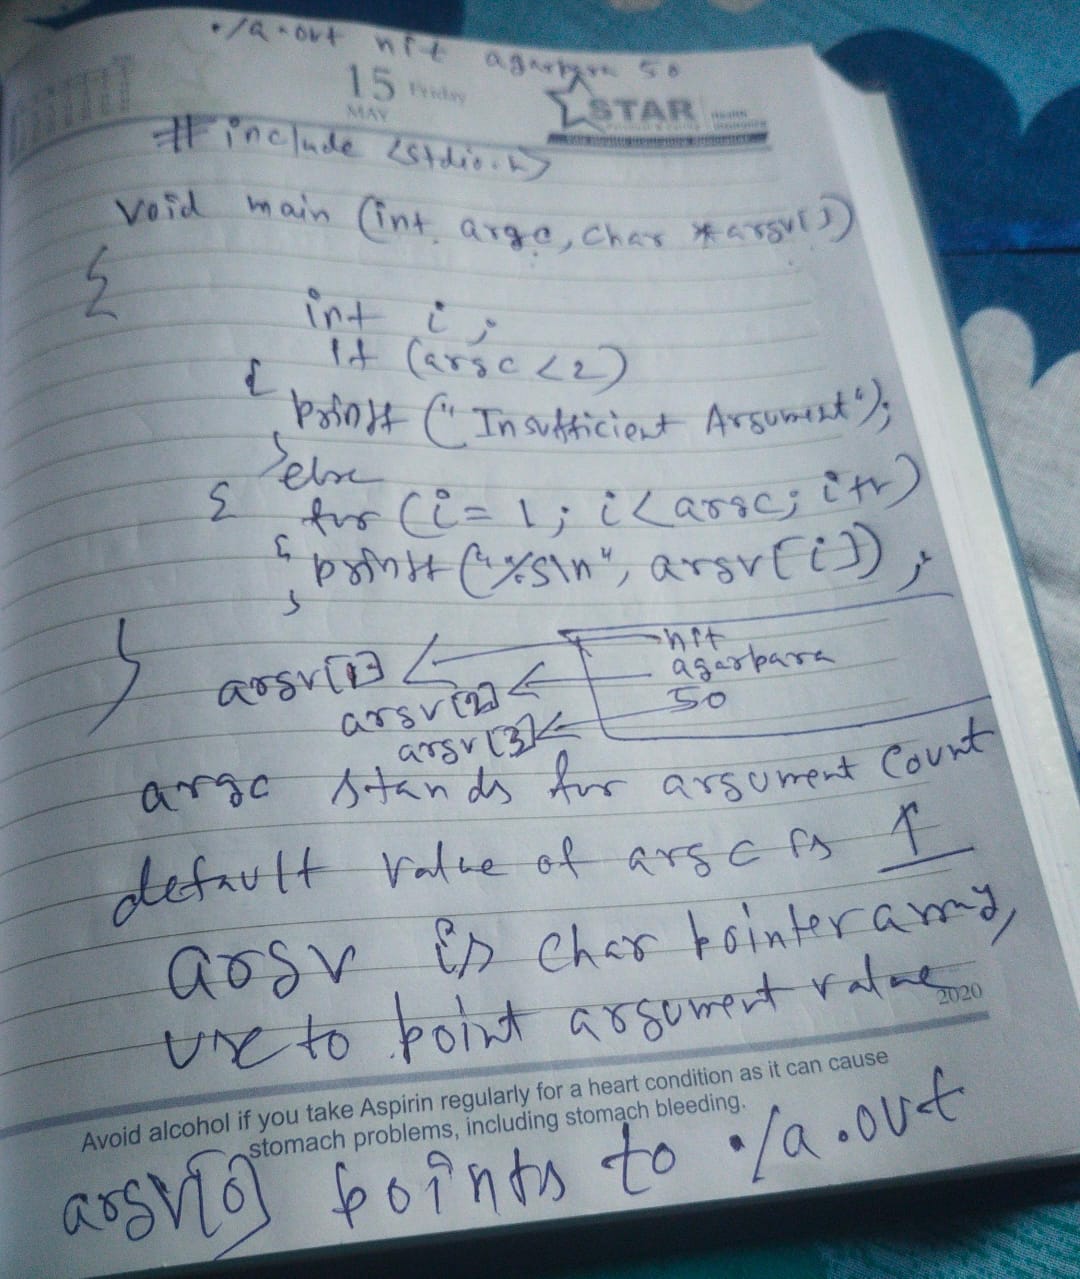 ./a.out nft agarbara 50
15 Friday
MAY
STAR
#include <stdio.h>
void main (int argc, char *argv[])
{
int i;
if (argc <2)
{
printf ("Insufficient Argument");
}else
{ for (i=1; i<argc; i++)
{ printf ("%s\n", argv[i]);
}
}
nft
argv[1] agarbara
argv[2] 50
argv[3]
argc stands for argument count
default value of argc is 1
argv is char pointer array,
use to point argument value
2020
Avoid alcohol if you take Aspirin regularly for a heart condition as it can cause
stomach problems, including stomach bleeding.
argv[0] points to ./a.out